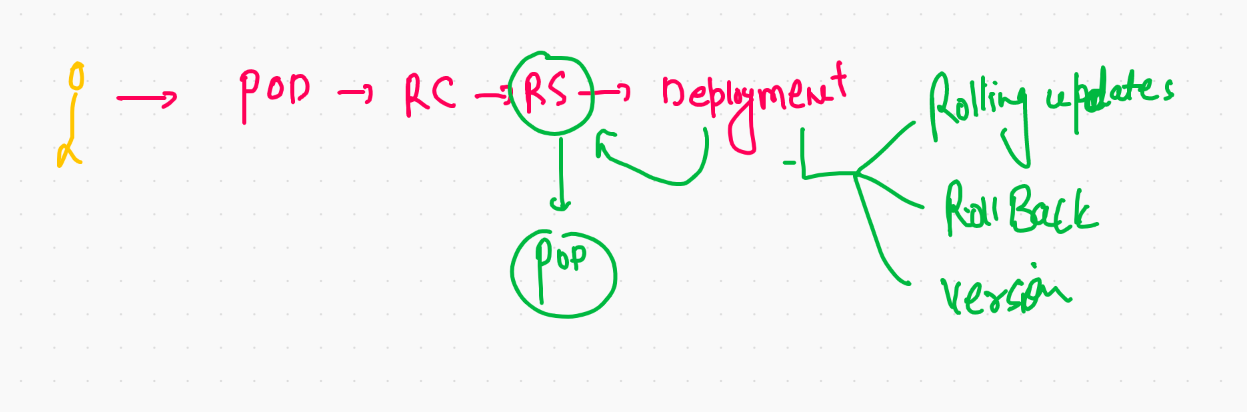 POD → RC → RS → Deployment
Rolling updates
RollBack
version
POD